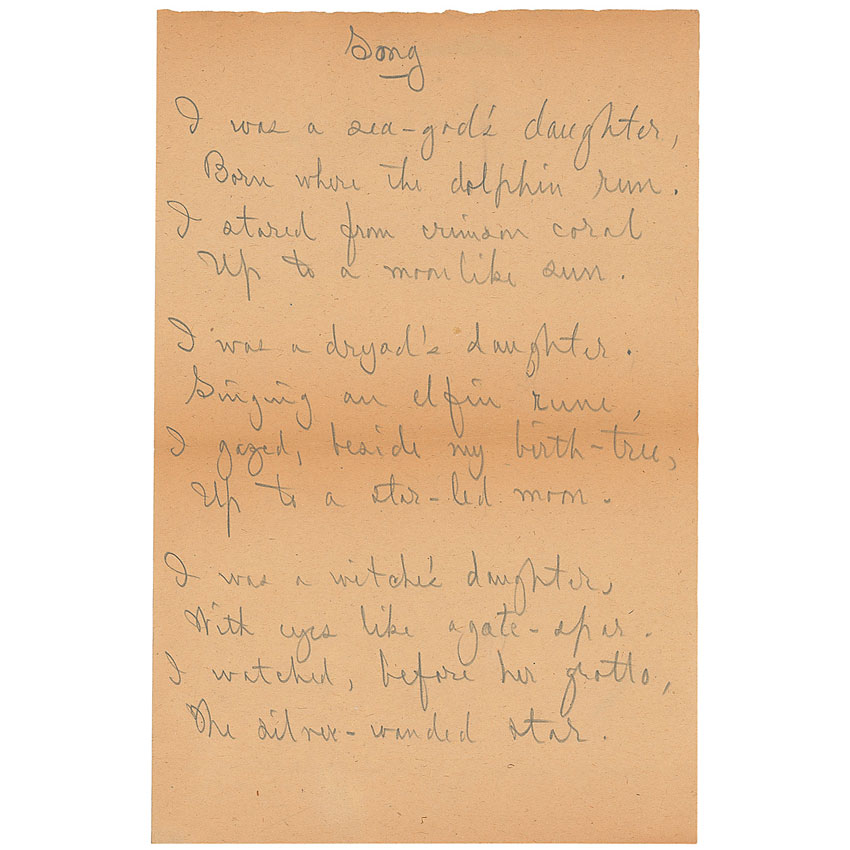 Song
I was a sea-god's daughter,
Born where the dolphin run.
I stared from crimson coral
Up to a moonlike sun.
I was a dryad's daughter.
Singing an elfin rune,
I gazed, beside my birth-tree,
Up to a star-led moon.
I was a witche's daughter,
With eyes like agate-spar.
I watched, before her grotto,
The silver-wanded star.